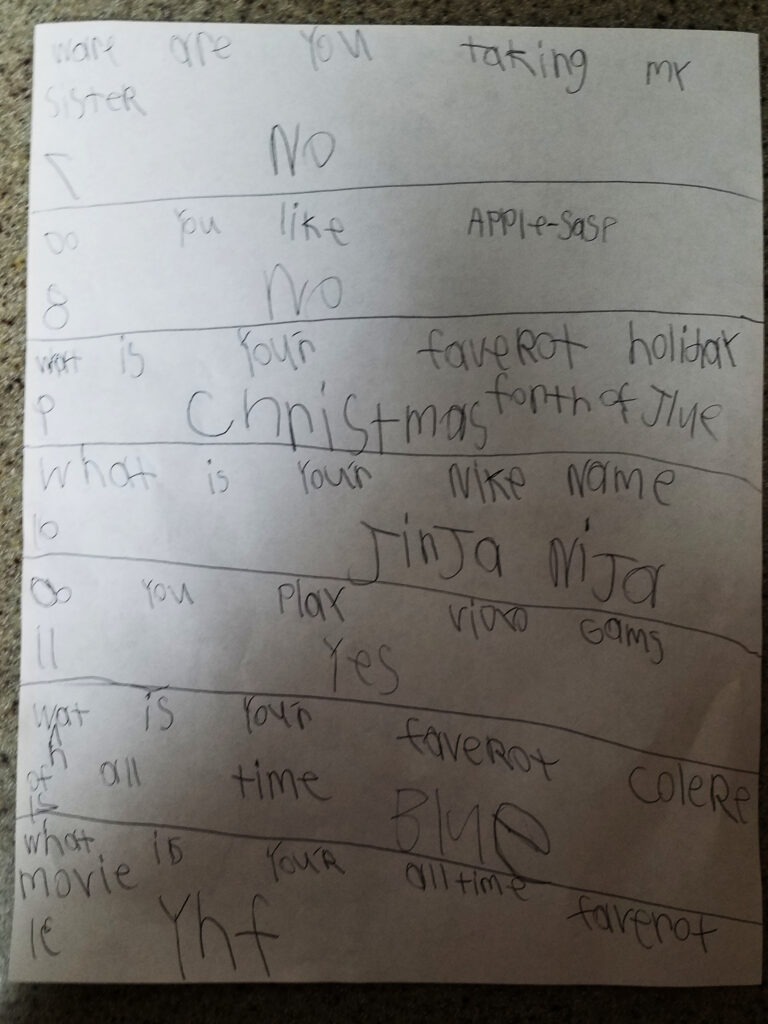 ware are you taking my
SisteR
7 NO
Do You like APPle-SaSP
8 NO
what is Your faveRot holiday
9 ChriStmas forth of Jlue
What is Your Nike Name
10 JinJa NiJa
Do You Play vidao Gams
11 Yes
wat is Your faveRot coleRe
of all time Blue
what is YouR all time faverot
movie
Yhf